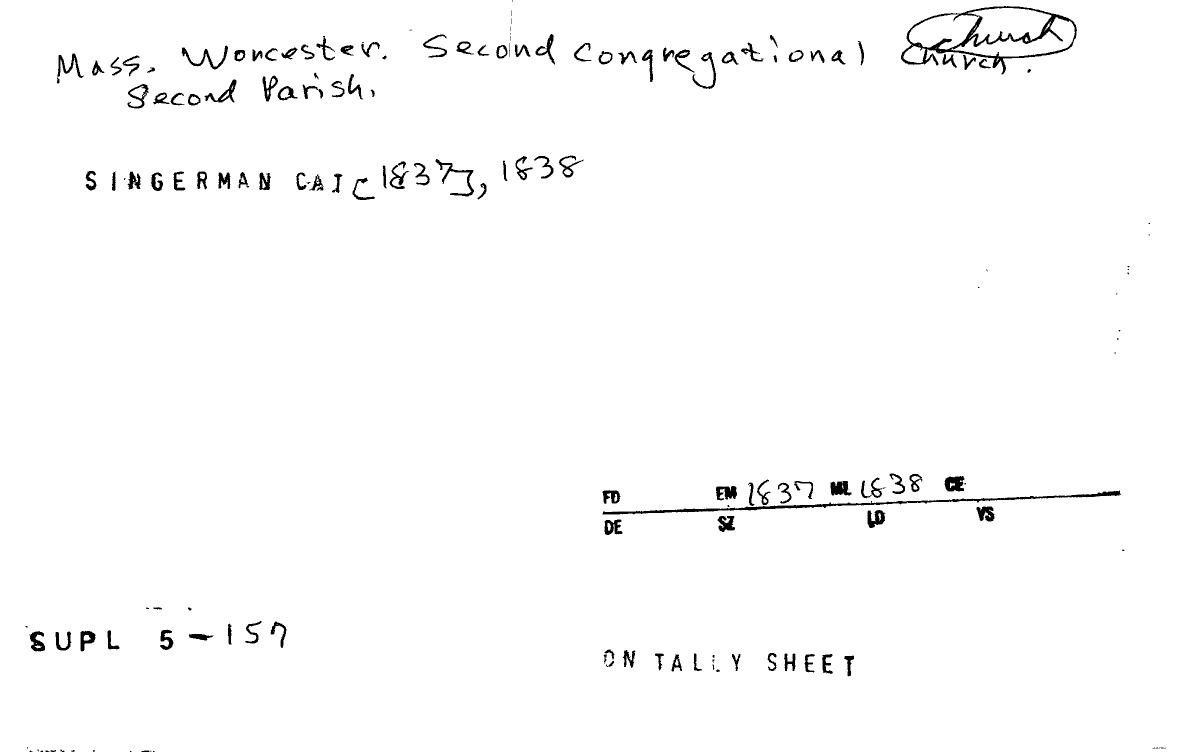 Church
Mass. Worcester. Second Congregational Church.
Second Parish.
SINGERMAN CAT [1837], 1838
FD EM 1837 ML 1838 CE
DE SZ LD VS
SUPL 5-157
ON TALLY SHEET